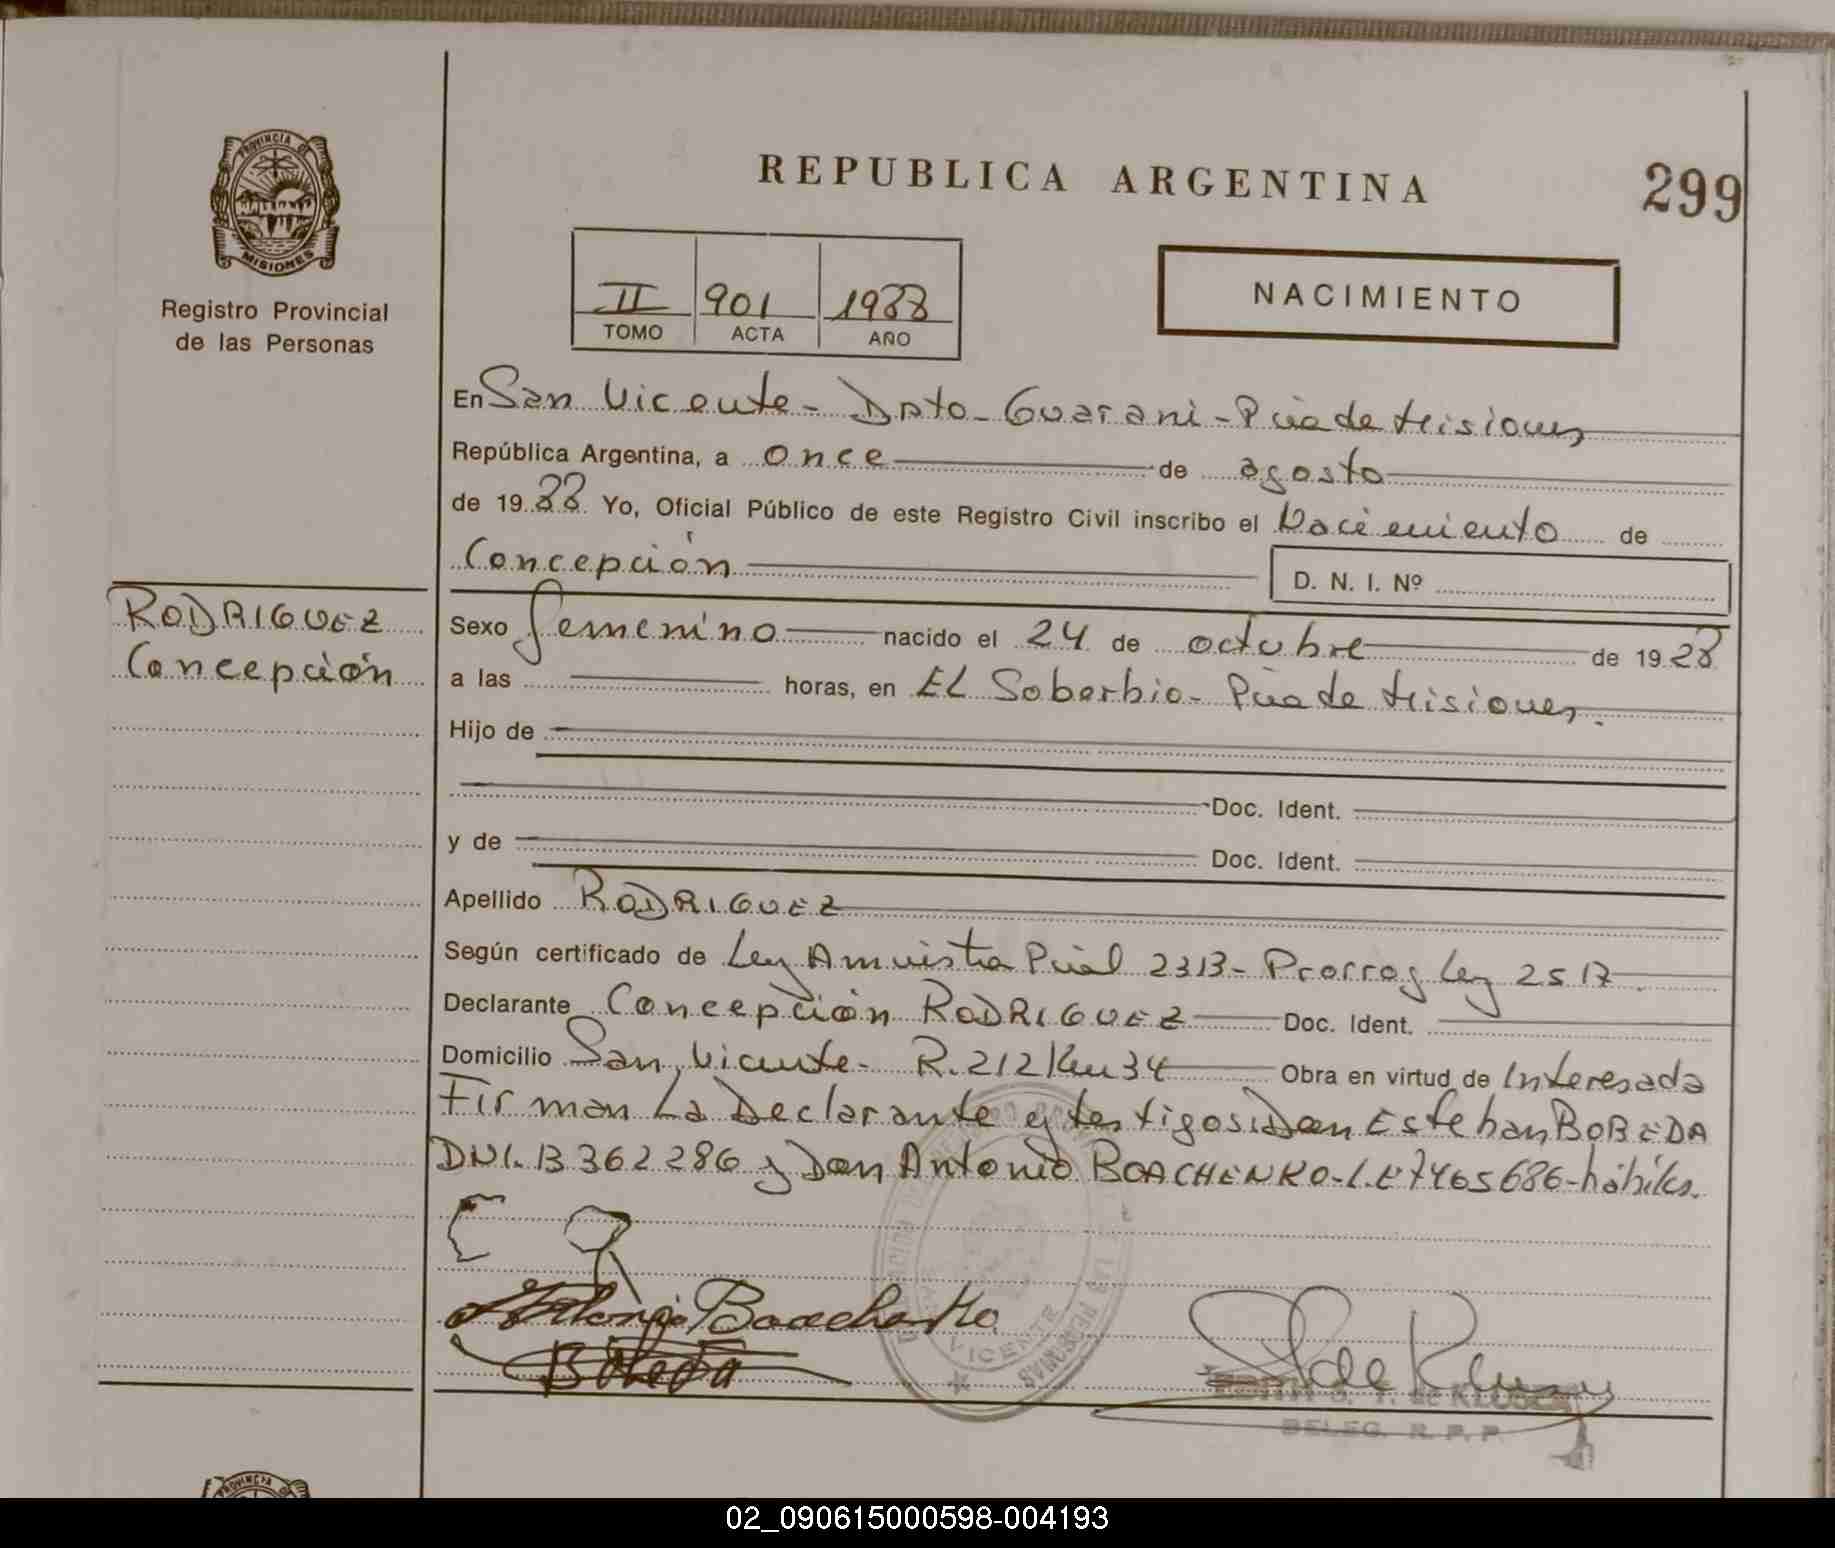 PROVINCIA DE
MISIONES
Registro Provincial
de las Personas
REPUBLICA ARGENTINA
299
II 901 1988
TOMO ACTA AÑO
NACIMIENTO
En San Vicente - Dpto - Guarani - Pcia de Misiones
República Argentina, a once de agosto
de 1988 Yo, Oficial Público de este Registro Civil inscribo el Nacimiento de
Concepción D. N. I. Nº
RODRIGUEZ
Concepción
Sexo femenino nacido el 24 de octubre de 1928
a las horas, en EL Soberbio - Pcia de Misiones.
Hijo de
Doc. Ident.
y de Doc. Ident.
Apellido RODRIGUEZ
Según certificado de Ley Amnistia Pcial 2313 - Prorrog Ley 2517
Declarante Concepción RODRIGUEZ Doc. Ident.
Domicilio San Vicente - R. 212 Km 34 Obra en virtud de Interesada
Firman La Declarante y testigos: Don Esteban BOBEDA
DNI. 13362286 y Don Antonio BOACHENKO - L.E 7465686 - hábiles.
Antonio Boachenko
Bobeda
VICENTE
PERSONAS
de KLUSEN
DELEG. R. P. P.
PROVINCIA
02_090615000598-004193